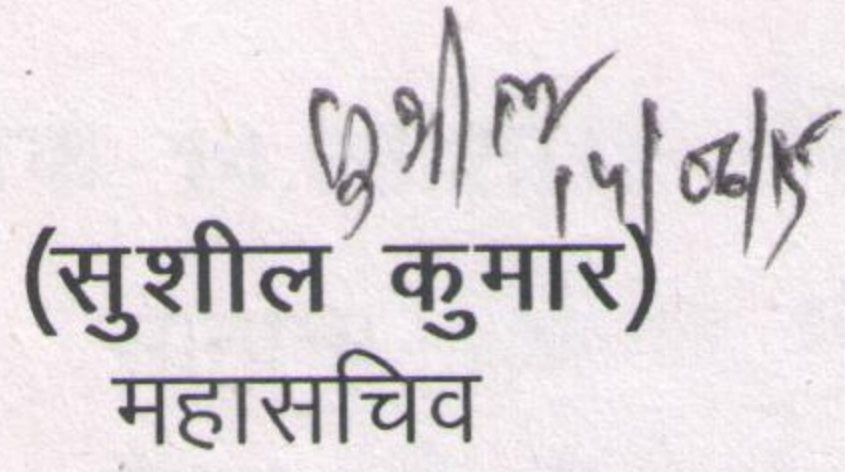 सुशील
14/06/15
(सुशील कुमार)
महासचिव